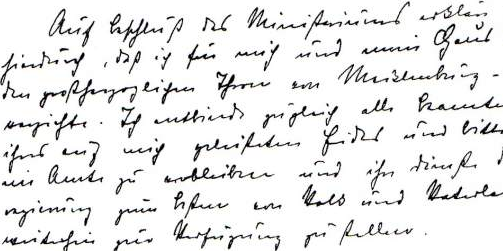 Auf Beschluß des Ministeriums erklär
hierdurch, daß ich für mich und mein Haus
den großherzoglichen Thron von Mecklenburg-
verzichte. Ich entbinde zugleich alle Beamte
ihres auf mich geleisteten Eides und bitte
im Amte zu verbleiben und ihre Dienste d
regierung zum Besten von Volk und Vaterla
weiterhin zur Verfügung zu stellen.